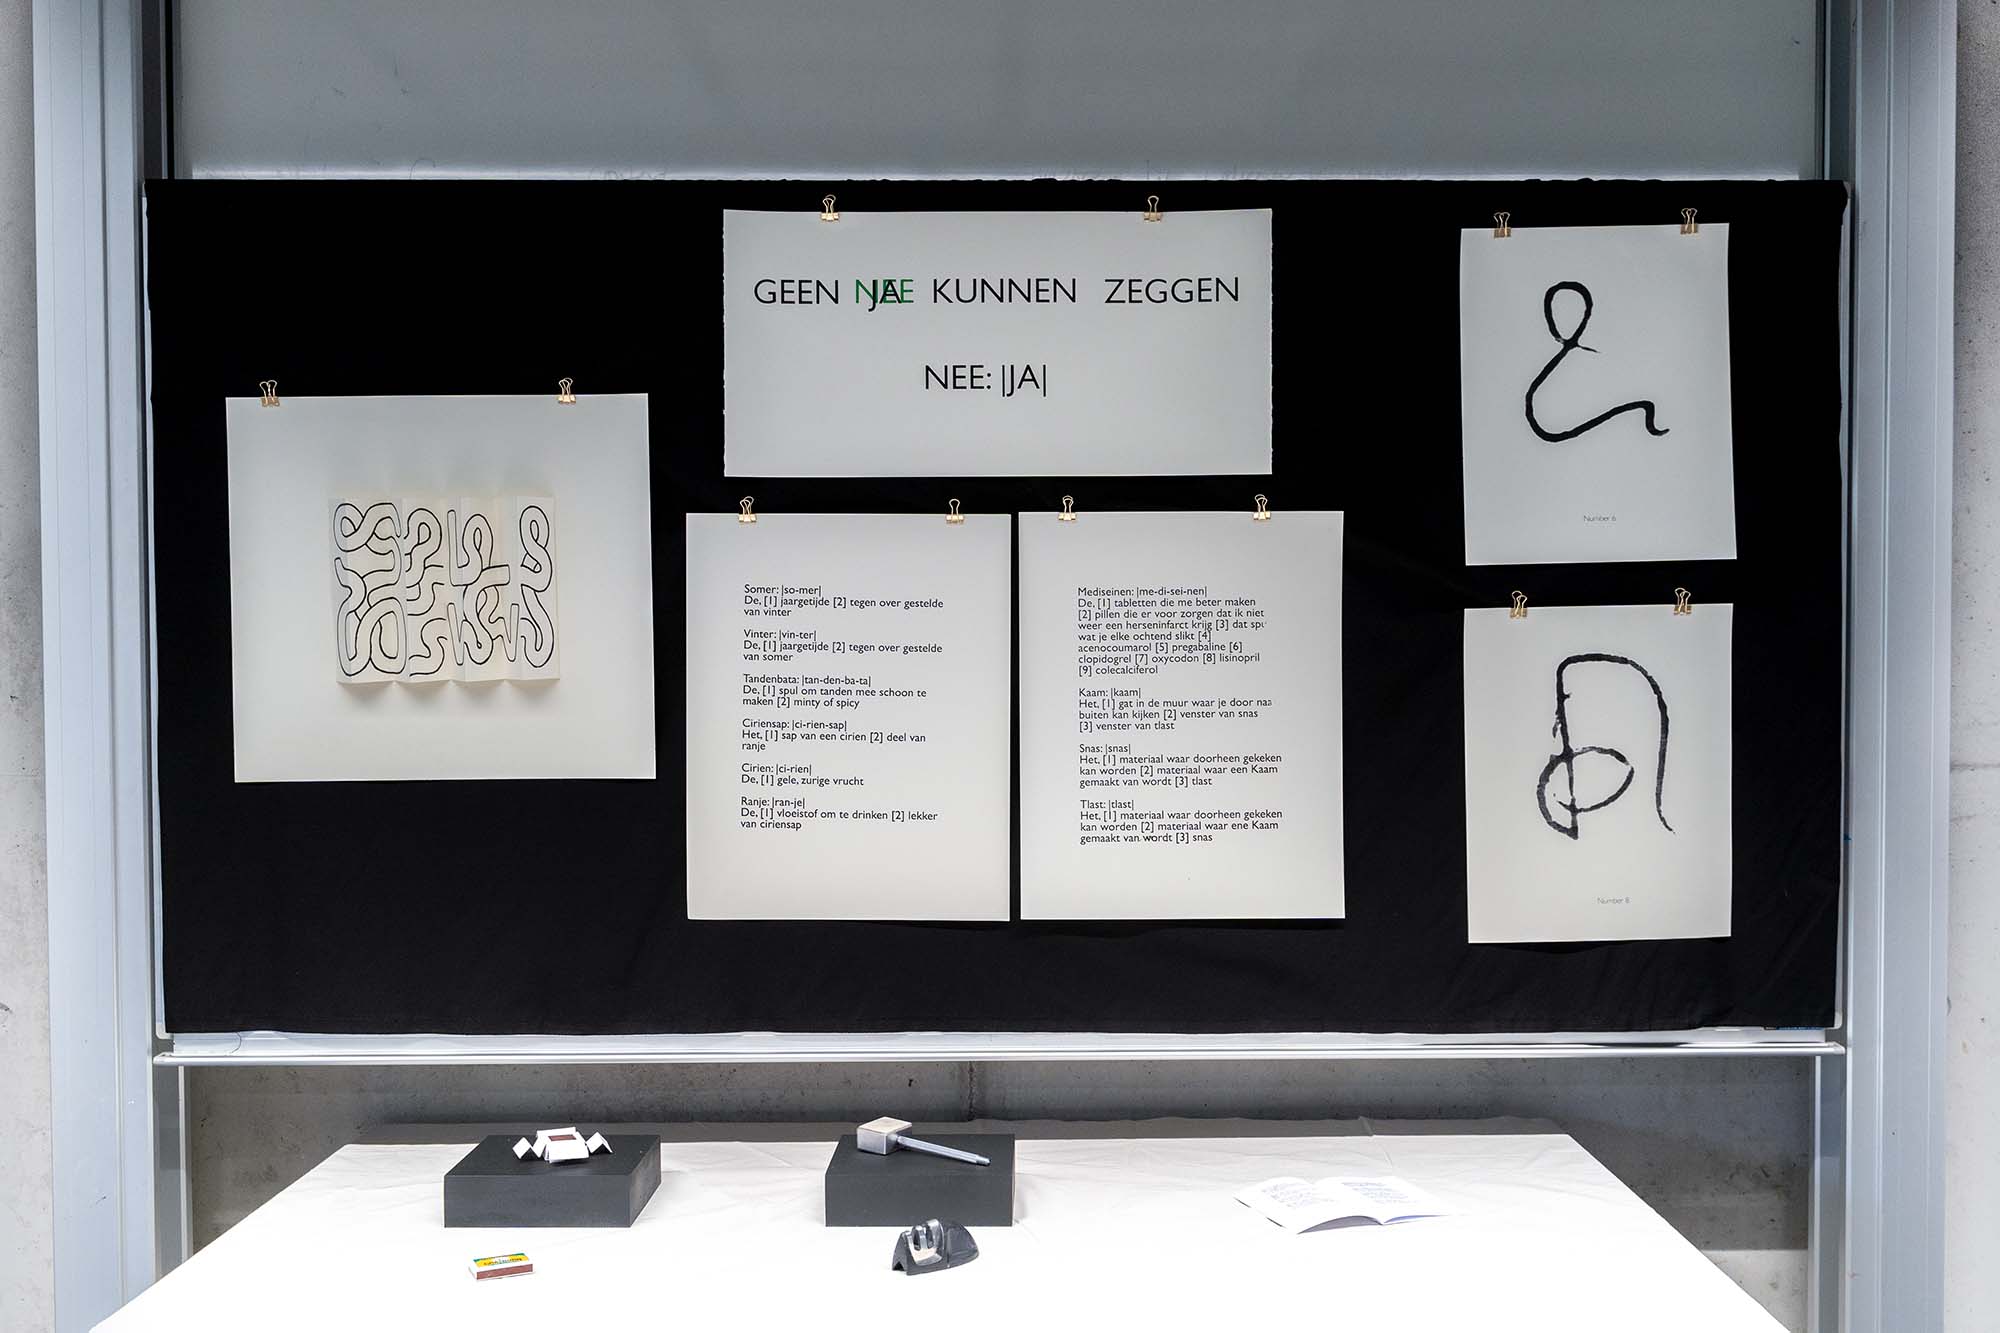 GEEN NEE JA KUNNEN ZEGGEN
NEE: |JA|
Somer: |so-mer|
De, [1] jaargetijde [2] tegen over gestelde
van vinter
Vinter: |vin-ter|
De, [1] jaargetijde [2] tegen over gestelde
van somer
Tandenbata: |tan-den-ba-ta|
De, [1] spul om tanden mee schoon te
maken [2] minty of spicy
Ciriensap: |ci-rien-sap|
Het, [1] sap van een cirien [2] deel van
ranje
Cirien: |ci-rien|
De, [1] gele, zurige vrucht
Ranje: |ran-je|
De, [1] vloeistof om te drinken [2] lekker
van ciriensap
Mediseinen: |me-di-sei-nen|
De, [1] tabletten die me beter maken
[2] pillen die er voor zorgen dat ik niet
weer een herseninfarct krijg [3] dat spu
wat je elke ochtend slikt [4]
acenocoumarol [5] pregabaline [6]
clopidogrel [7] oxycodon [8] lisinopril
[9] colecalciferol
Kaam: |kaam|
Het, [1] gat in de muur waar je door naa
buiten kan kijken [2] venster van snas
[3] venster van tlast
Snas: |snas|
Het, [1] materiaal waar doorheen gekeken
kan worden [2] materiaal waar een Kaam
gemaakt van wordt [3] tlast
Tlast: |tlast|
Het, [1] materiaal waar doorheen gekeken
kan worden [2] materiaal waar ene Kaam
gemaakt van wordt [3] snas
Number 6
Number 8